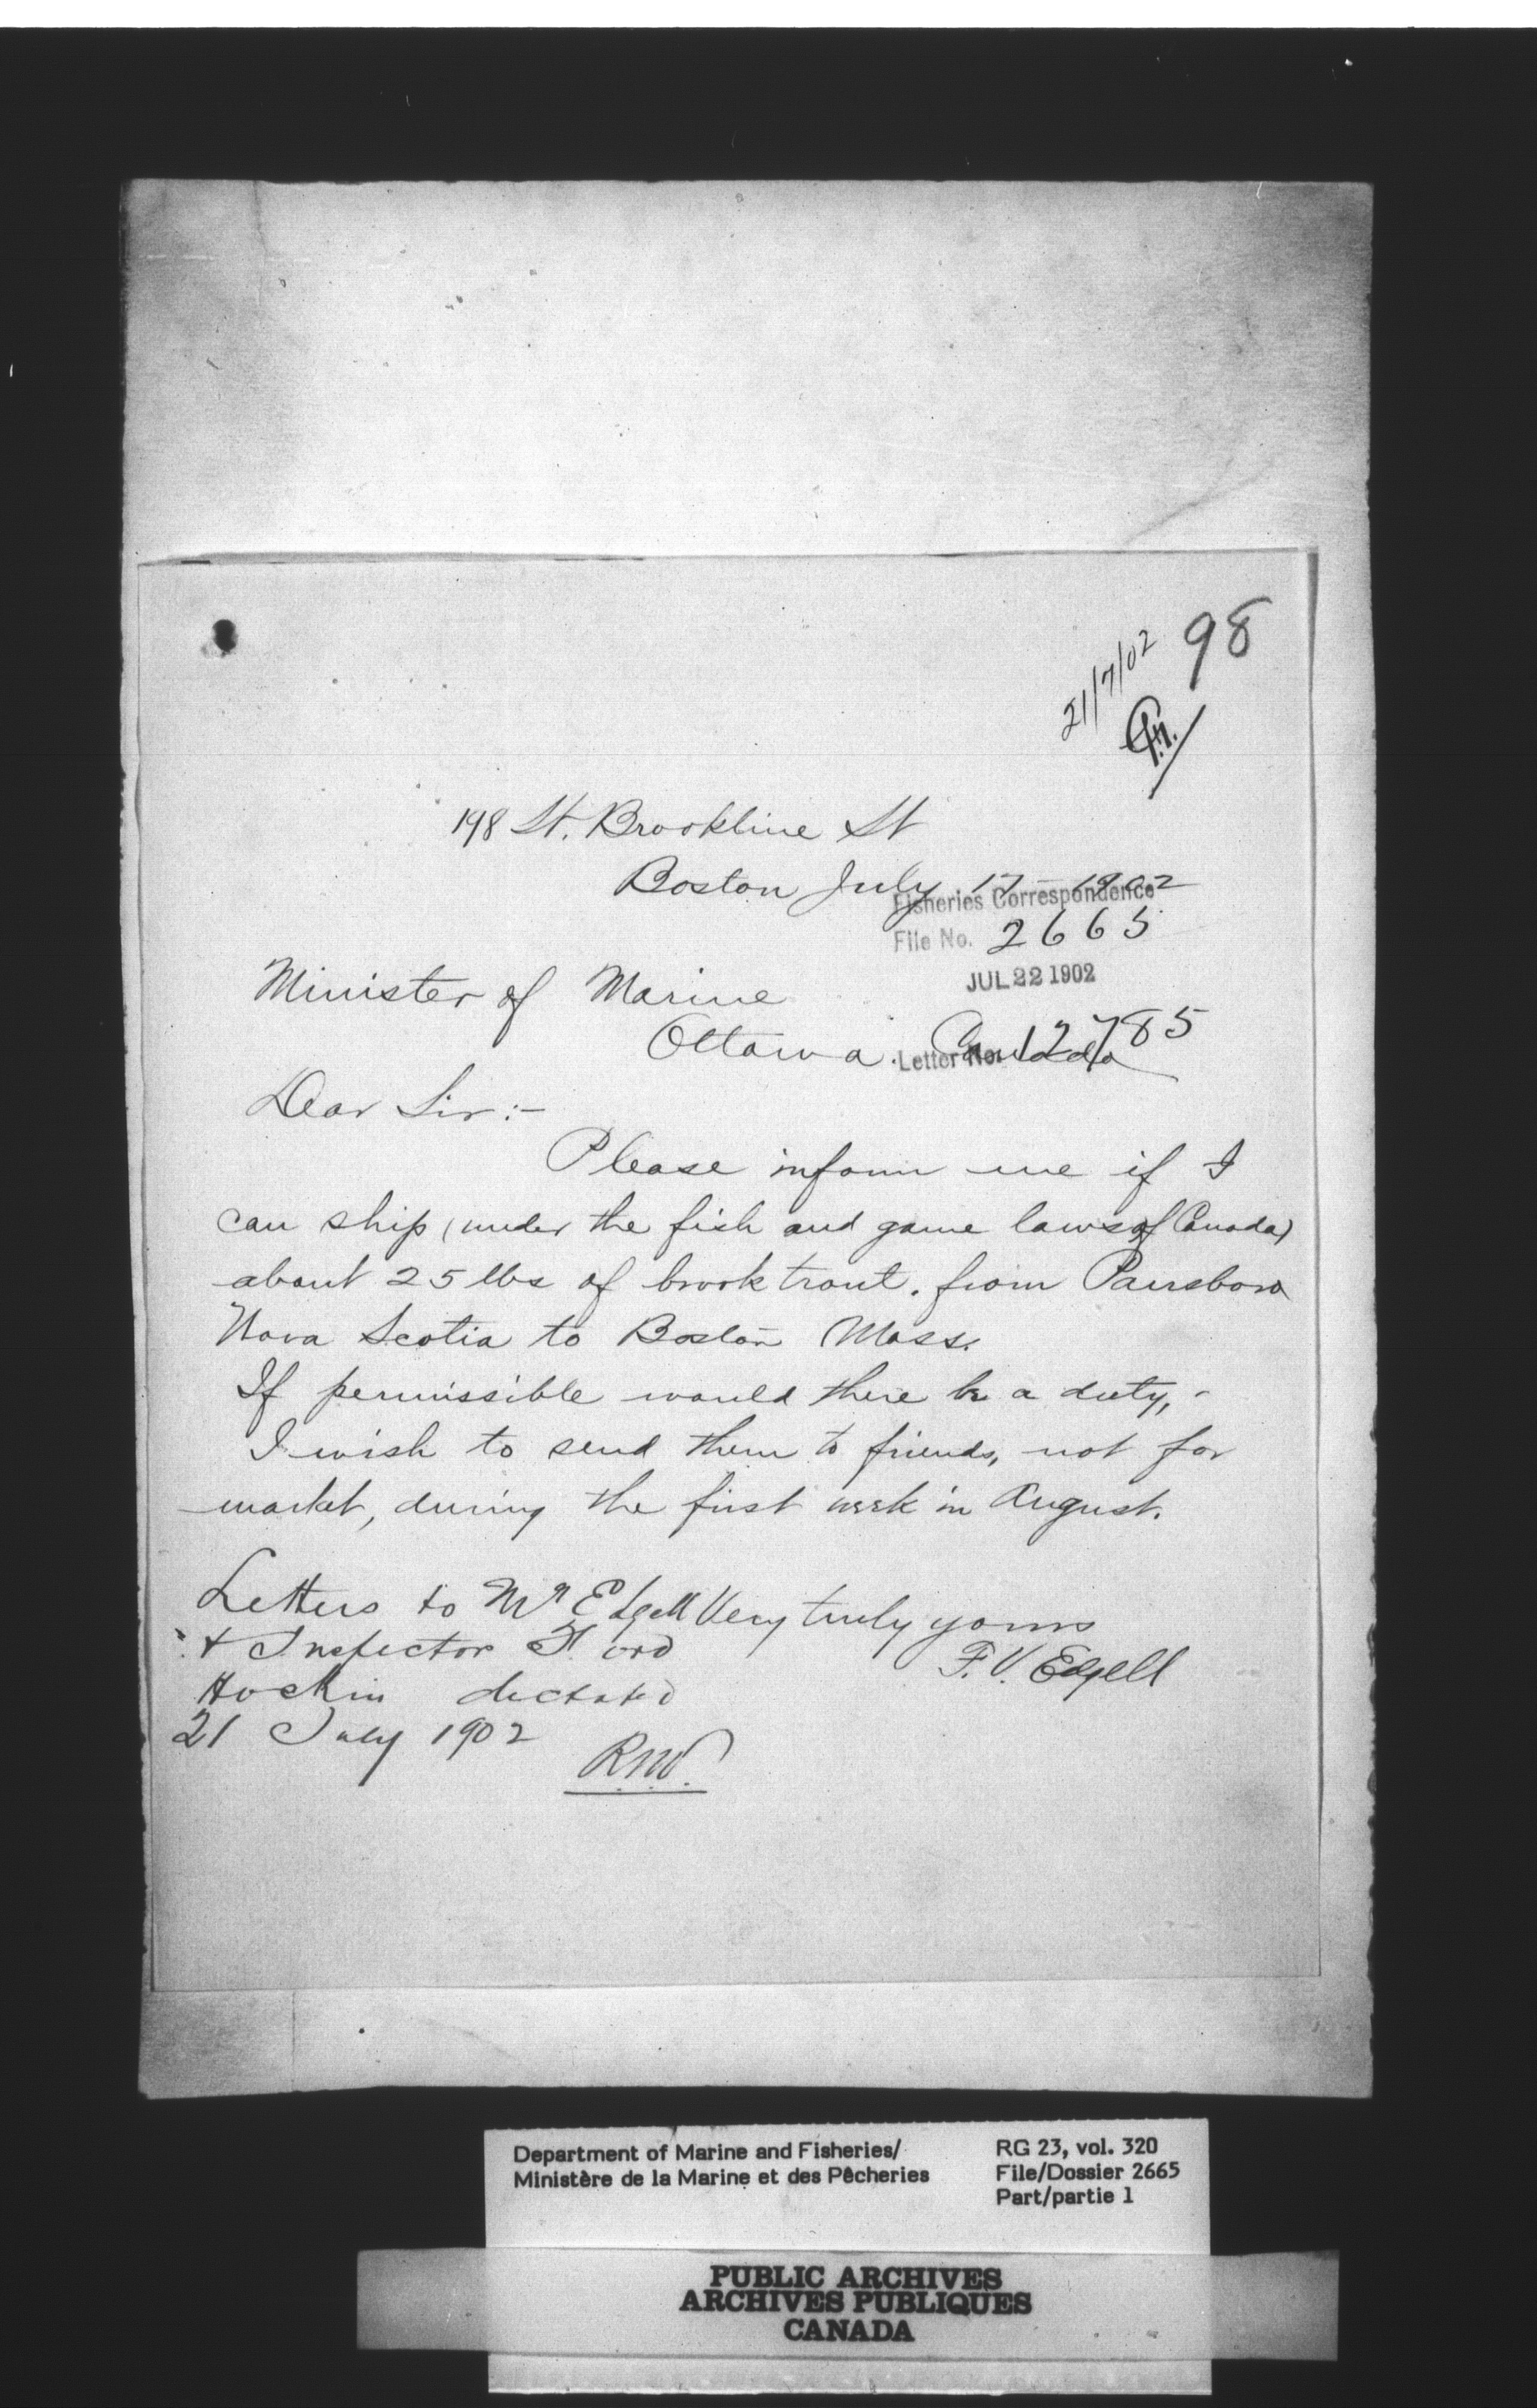 98
21/7/02
198 St. Brookline St
Boston July 17 - 1902
Fisheries Correspondence
File No. 2665
JUL 22 1902
Minister of Marine
Ottawa. Canada
Letter No. 12785
Dear Sir:-
Please inform me if I
can ship (under the fish and game laws of Canada)
about 25 lbs of brook trout. from Parrsboro
Nova Scotia to Boston Mass.
If permissible would there be a duty, -
I wish to send them to friends, not for
market, during the first week in August.
Very truly yours
F. V. Edgell
Letters to Mr Edgell
+ Inspector Ford
Hockin dictated
21 July 1902
R.N.V.
Department of Marine and Fisheries/
Ministère de la Marine et des Pêcheries
RG 23, vol. 320
File/Dossier 2665
Part/partie 1
PUBLIC ARCHIVES
ARCHIVES PUBLIQUES
CANADA